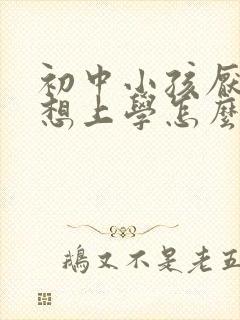 初中小孩厭
想上學怎麼
鵝又不是老五